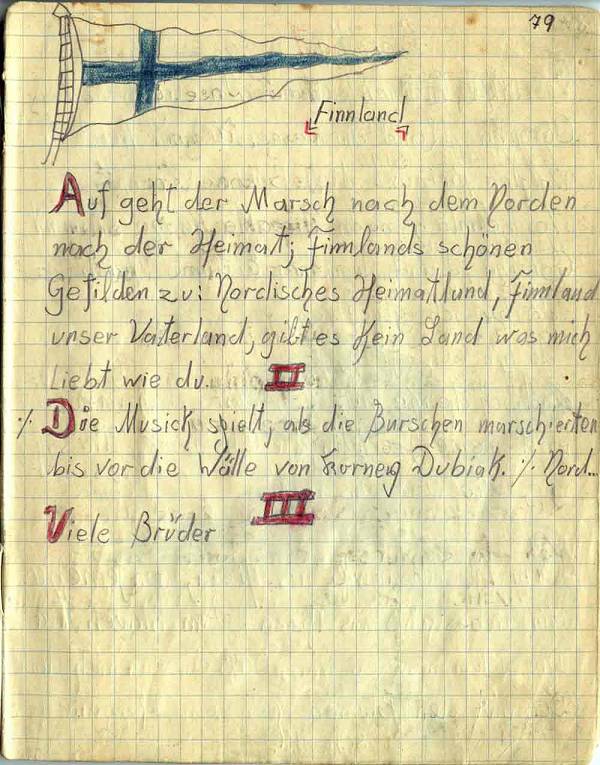 79
Finnland
Auf geht der Marsch nach dem Norden
nach der Heimat; Finnlands schönen
Gefilden zu: Nordisches Heimatlund, Finnland
unser Vaterland, gibt es kein Land was mich
Liebt wie du.
II
٪ Die Musick spielt, als die Burschen marschierten
bis vor die Wälle von Gorneg Dubiak. ٪ Nord...
III
Viele Brüder